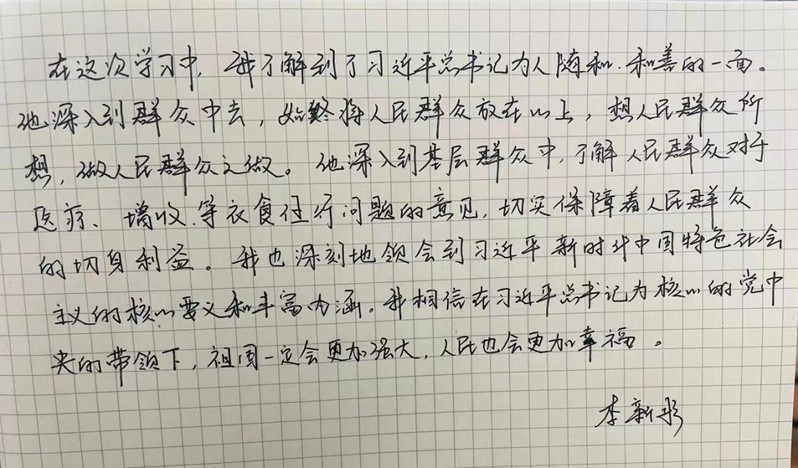 在这次学习中，我了解到了习近平总书记为人随和、和善的一面。
他深入到群众中去，始终将人民群众放在心上，想人民群众所
想，做人民群众之做。他深入到基层群众中，了解人民群众对于
医疗、增收、等衣食住行问题的意见，切实保障着人民群众
的切身利益。我也深刻地领会到习近平新时代中国特色社会
主义的核心要义和丰富内涵。我相信在习近平总书记为核心的党中
央的带领下，祖国一定会更加强大，人民也会更加幸福。
李新彤